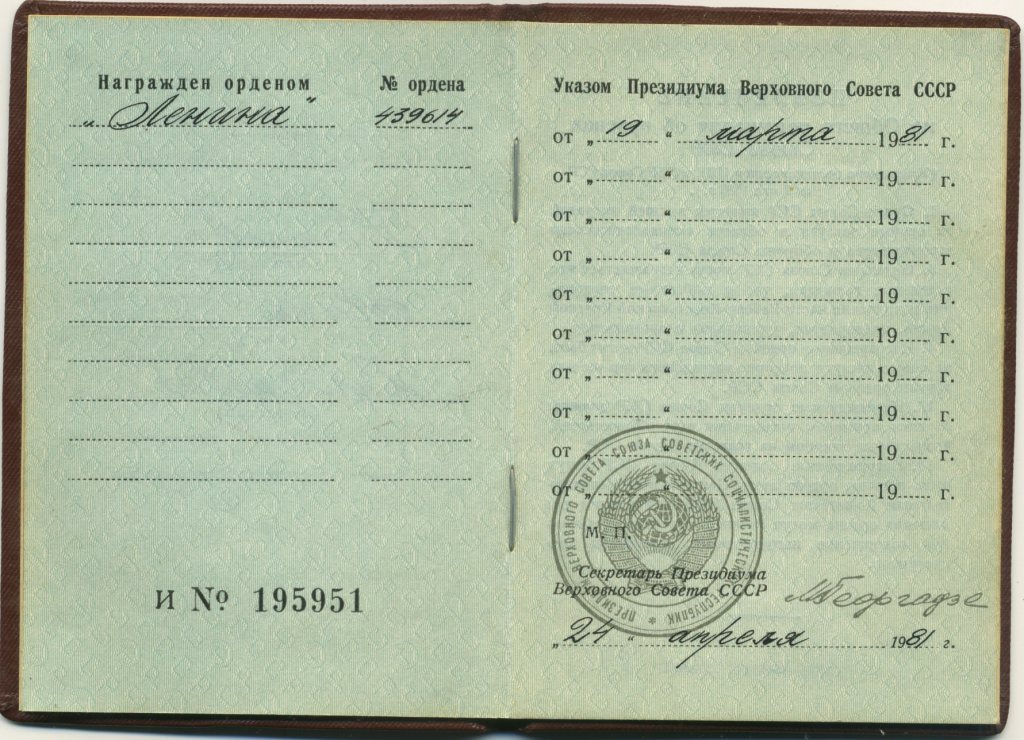 Награжден орденом
№ ордена
„Ленина“
439614
И № 195951
Указом Президиума Верховного Совета СССР
от „19“ марта 1981 г.
от „ “ 19 г.
от „ “ 19 г.
от „ “ 19 г.
от „ “ 19 г.
от „ “ 19 г.
от „ “ 19 г.
от „ “ 19 г.
от „ “ 19 г.
от „ “ 19 г.
ПРЕЗИДИУМ ВЕРХОВНОГО СОВЕТА СОЮЗА СОВЕТСКИХ СОЦИАЛИСТИЧЕСКИХ РЕСПУБЛИК *
М. П.
Секретарь Президиума
Верховного Совета СССР
МГеоргадзе
„24“ апреля 1981 г.